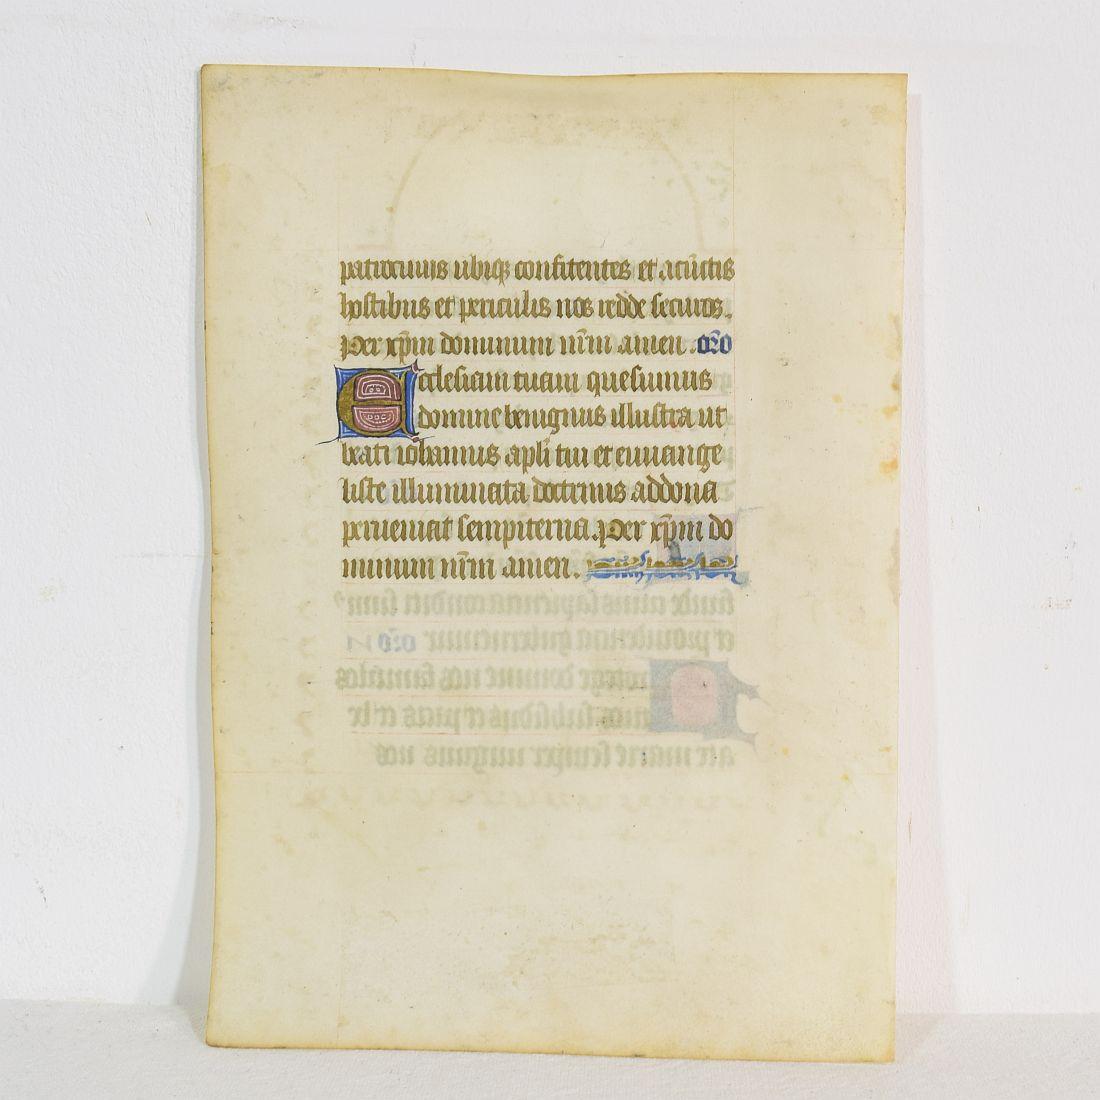 patrociniis ubiq3 confitentes et a cũctis
hostibus et periculis nos redde securos.
Per xp̄m dominum nr̄m amen. or̄o
Ecclesiam tuam quesumus
domine benignus illustra ut
beati iohannis apl̄i tui et euuange
liste illuminata doctrinis ad dona
perueniat sempiterna. Per xp̄m do
minum nr̄m amen.